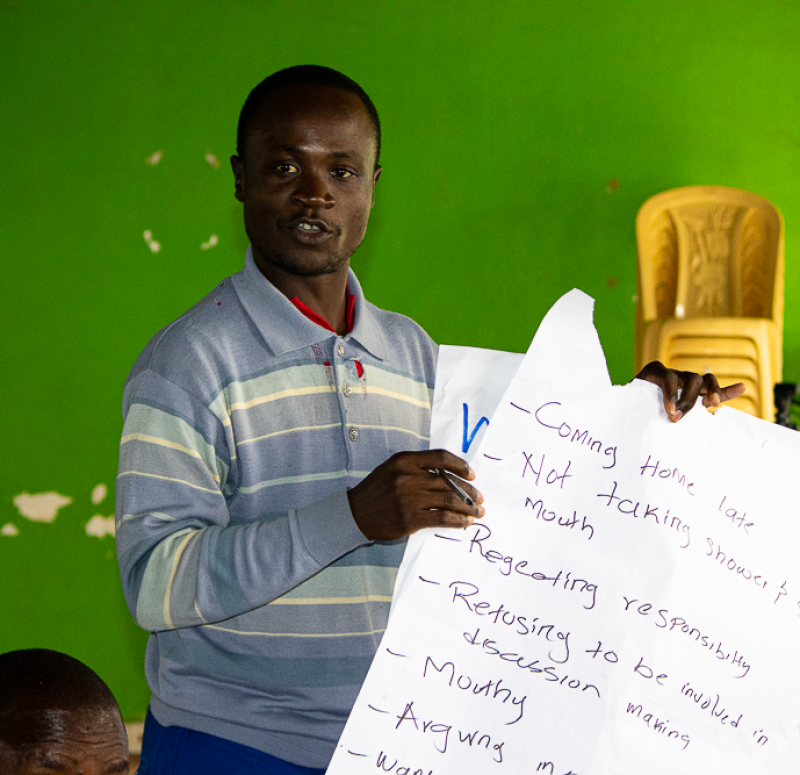 - Coming Home late
- Not taking shower &
mouth
- Regecting responsibity
- Refusing to be involved in
discussion making
- Mouthy
- Argwng in
- Wan